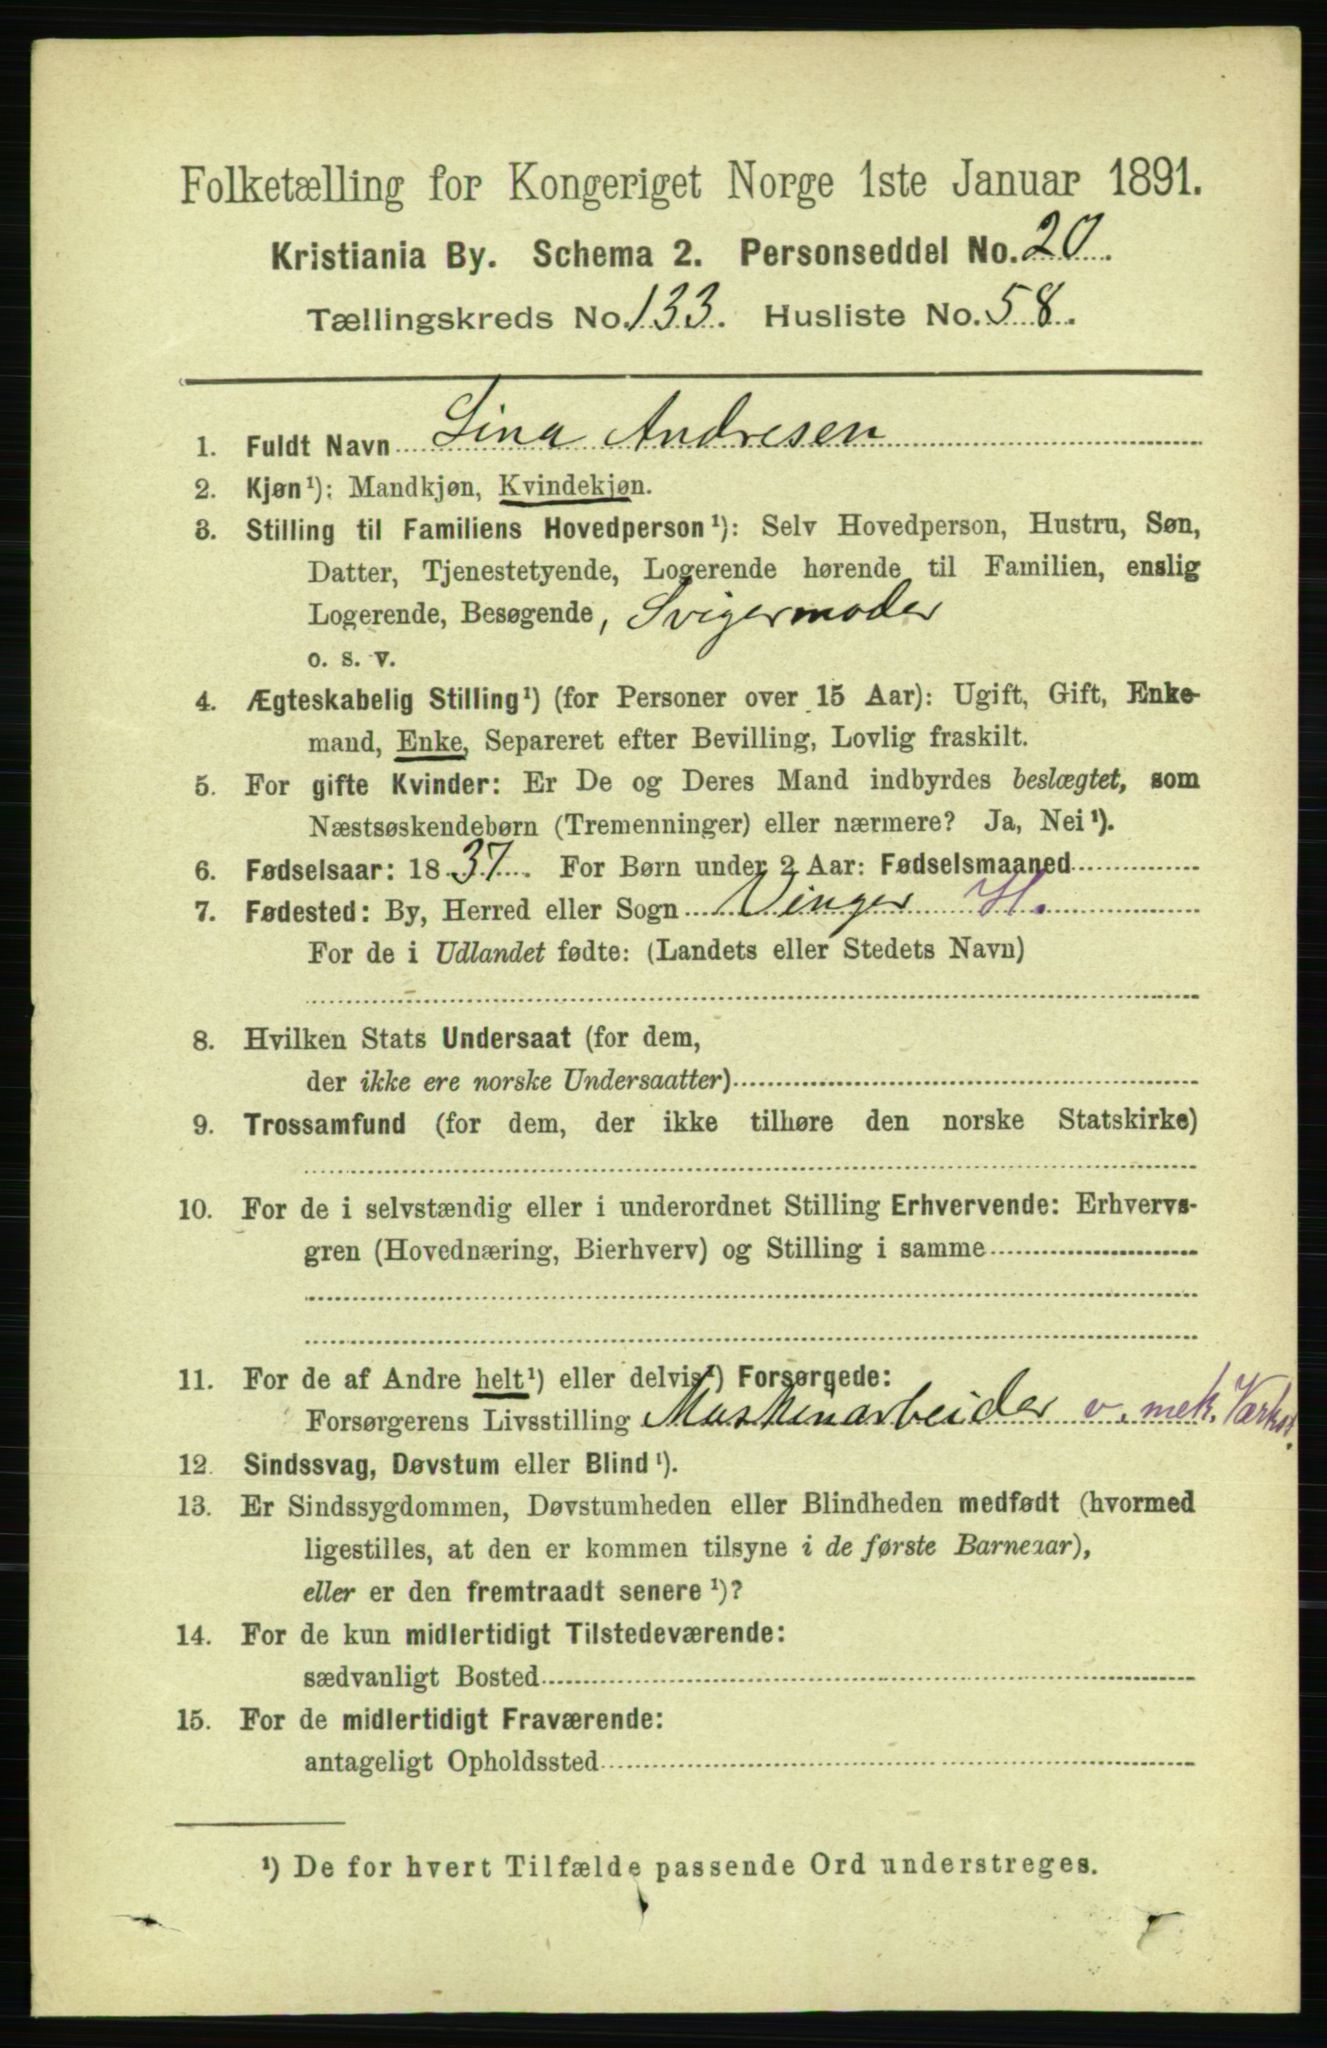 Folketælling for Kongeriget Norge 1ste Januar 1891.
Kristiania By. Schema 2. Personseddel No. 20.
Tællingskreds No. 133. Husliste No. 58.
1. Fuldt Navn Lina Andresen
2. Kjøn¹): Mandkjøn, Kvindekjøn.
3. Stilling til Familiens Hovedperson¹): Selv Hovedperson, Hustru, Søn,
Datter, Tjenestetyende, Logerende hørende til Familien, enslig
Logerende, Besøgende, Svigermoder
o. s. v.
4. Ægteskabelig Stilling¹) (for Personer over 15 Aar): Ugift, Gift, Enke-
mand, Enke, Separeret efter Bevilling, Lovlig fraskilt.
5. For gifte Kvinder: Er De og Deres Mand indbyrdes beslægtet, som
Næstsøskendebørn (Tremenninger) eller nærmere? Ja, Nei¹).
6. Fødselsaar: 1837. For Børn under 2 Aar: Fødselsmaaned
7. Fødested: By, Herred eller Sogn Vinger H.
For de i Udlandet fødte: (Landets eller Stedets Navn)
8. Hvilken Stats Undersaat (for dem,
der ikke ere norske Undersaatter)
9. Trossamfund (for dem, der ikke tilhøre den norske Statskirke)
10. For de i selvstændig eller i underordnet Stilling Erhvervende: Erhvervs-
gren (Hovednæring, Bierhverv) og Stilling i samme
11. For de af Andre helt¹) eller delvis¹) Forsørgede:
Forsørgerens Livsstilling Maskinarbeider v. mek. Værkst.
12. Sindssvag, Døvstum eller Blind¹).
13. Er Sindssygdommen, Døvstumheden eller Blindheden medfødt (hvormed
ligestilles, at den er kommen tilsyne i de første Barneaar),
eller er den fremtraadt senere¹)?
14. For de kun midlertidigt Tilstedeværende:
sædvanligt Bosted
15. For de midlertidigt Fraværende:
antageligt Opholdssted
¹) De for hvert Tilfælde passende Ord understreges.